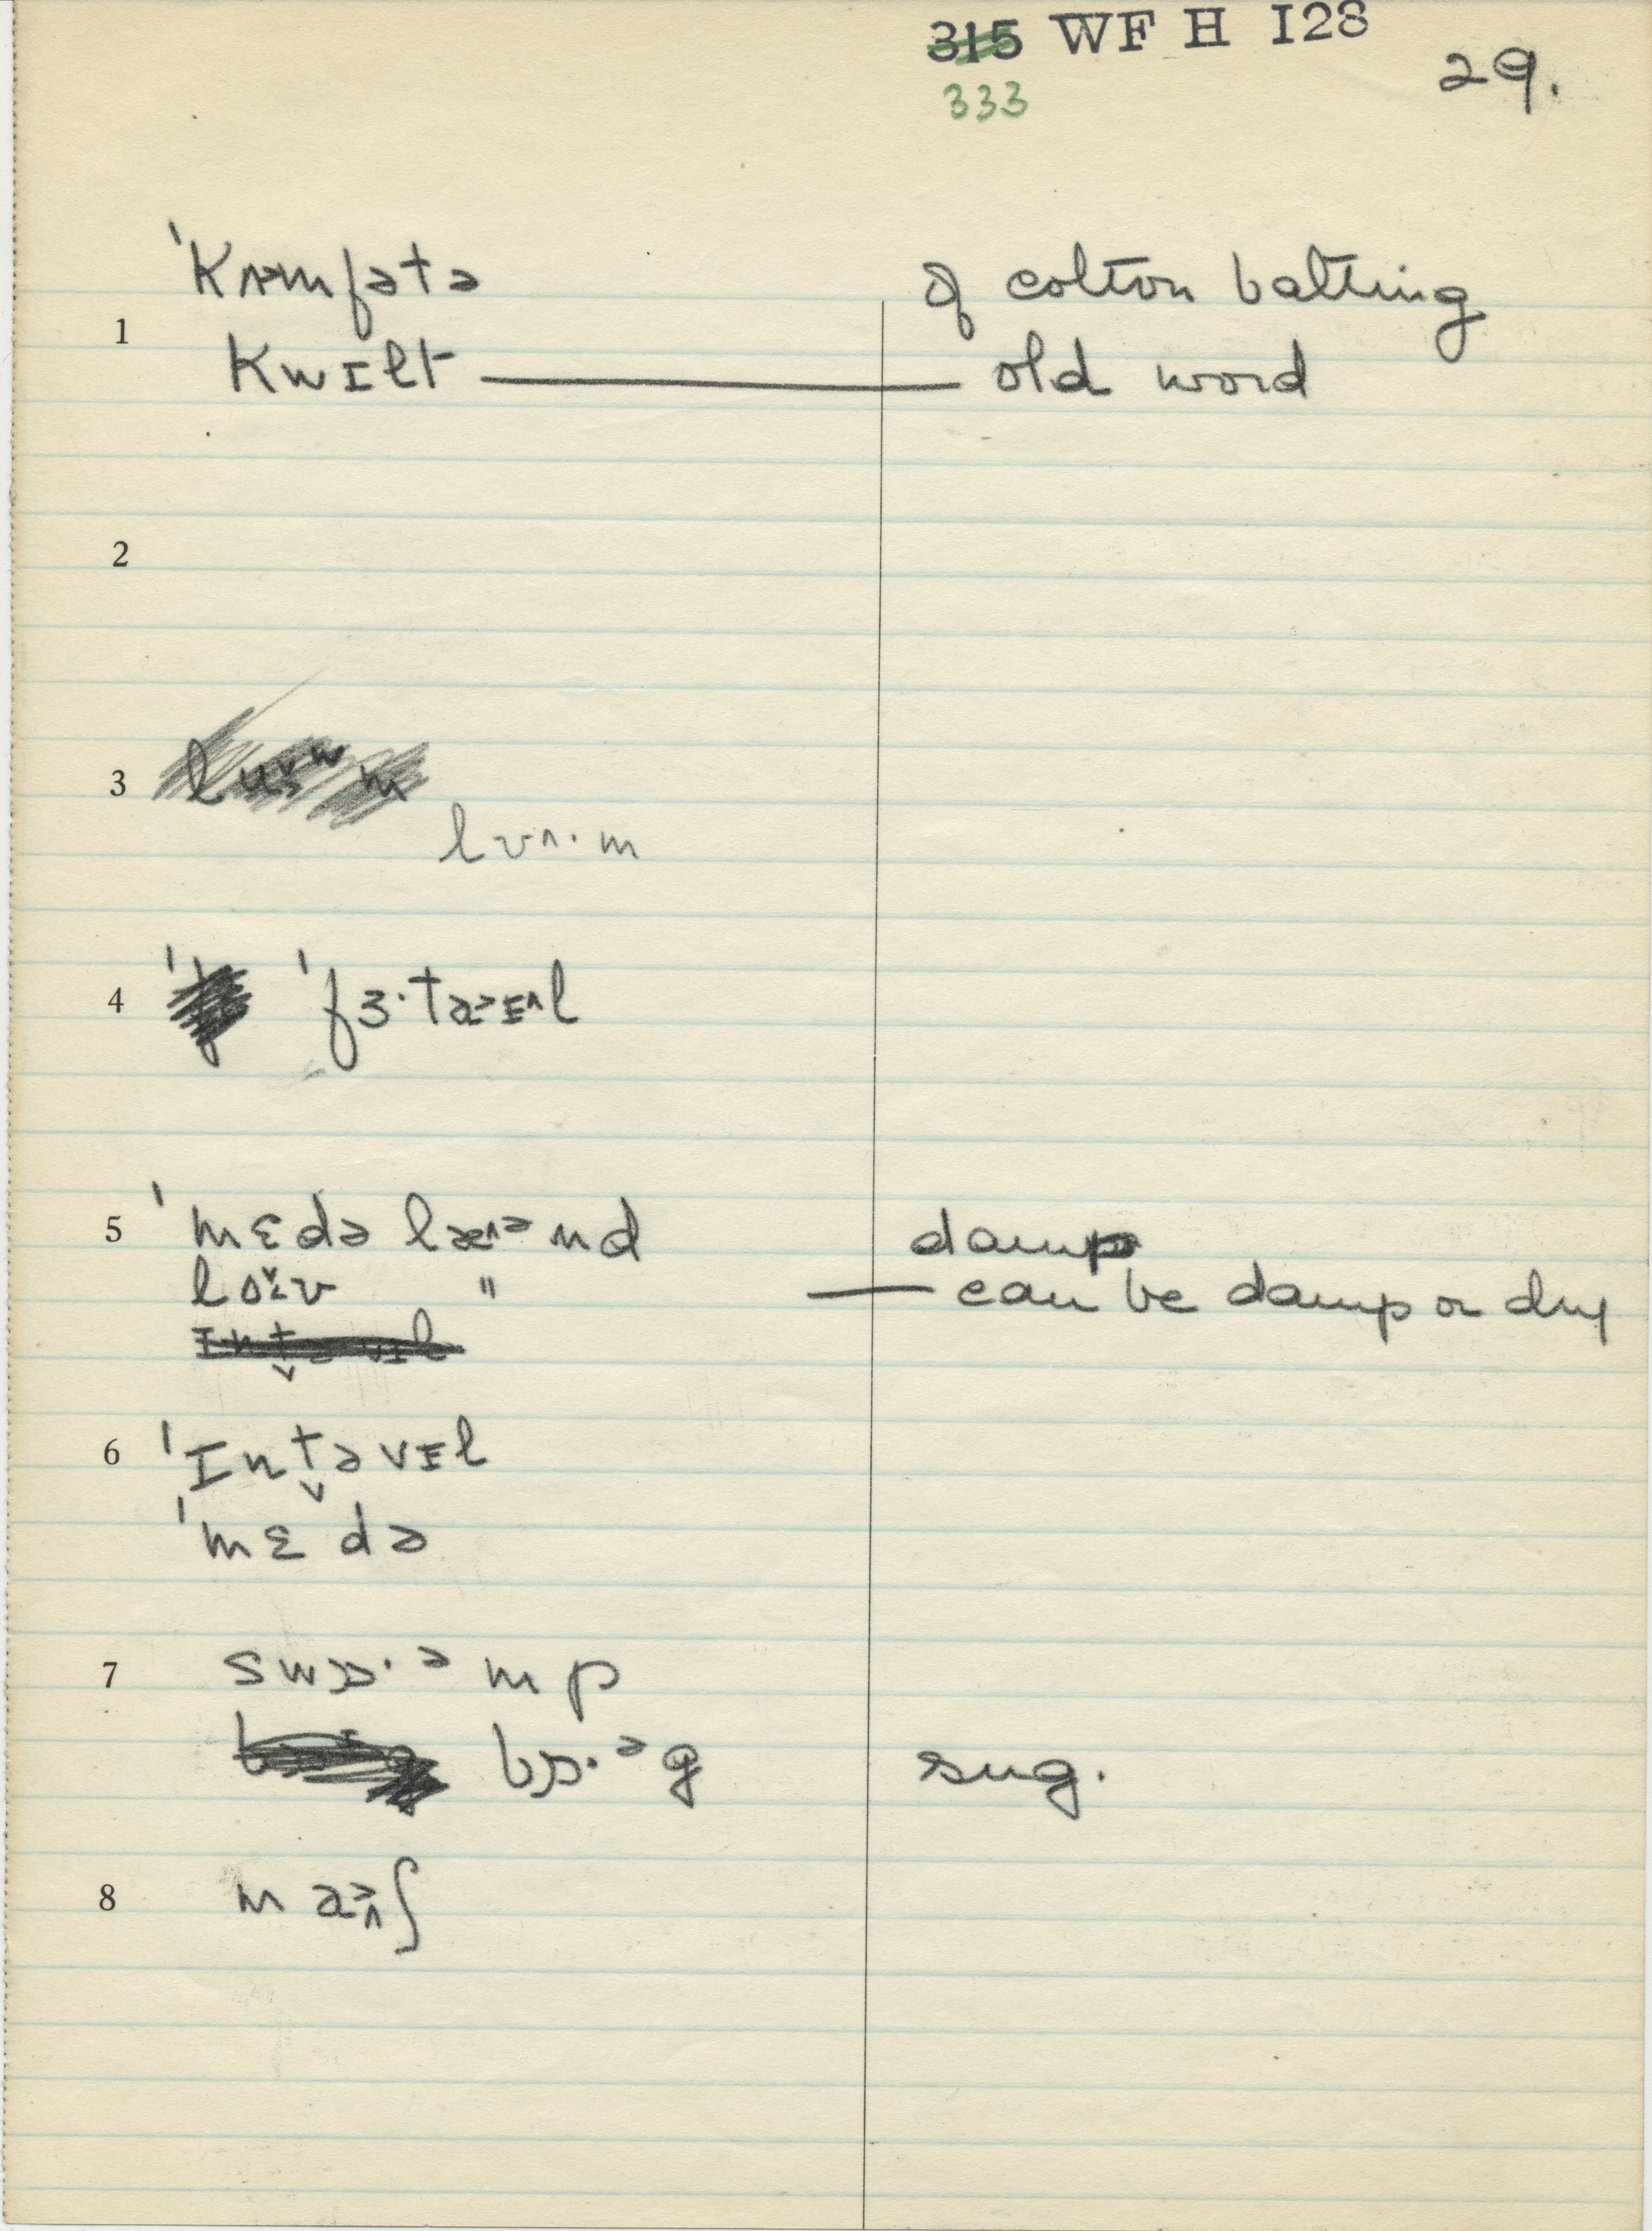 315 WF H I28
333
29.
ˈkʌɚmfətə of cotton batting
1
kwɪlt — old word
2
3
lʊʌ·m
4 ˈfɜ·təᵊɪʌl
5 ˈmɛdə læʌᵊnd damp
loʊ " — can be damp or dry
6 ˈɪnt̬əvɪl
ˈmɛdə
7 swɒ·ᵊmp
bɒ·ᵊg sug.
8 maᵊʌʃ